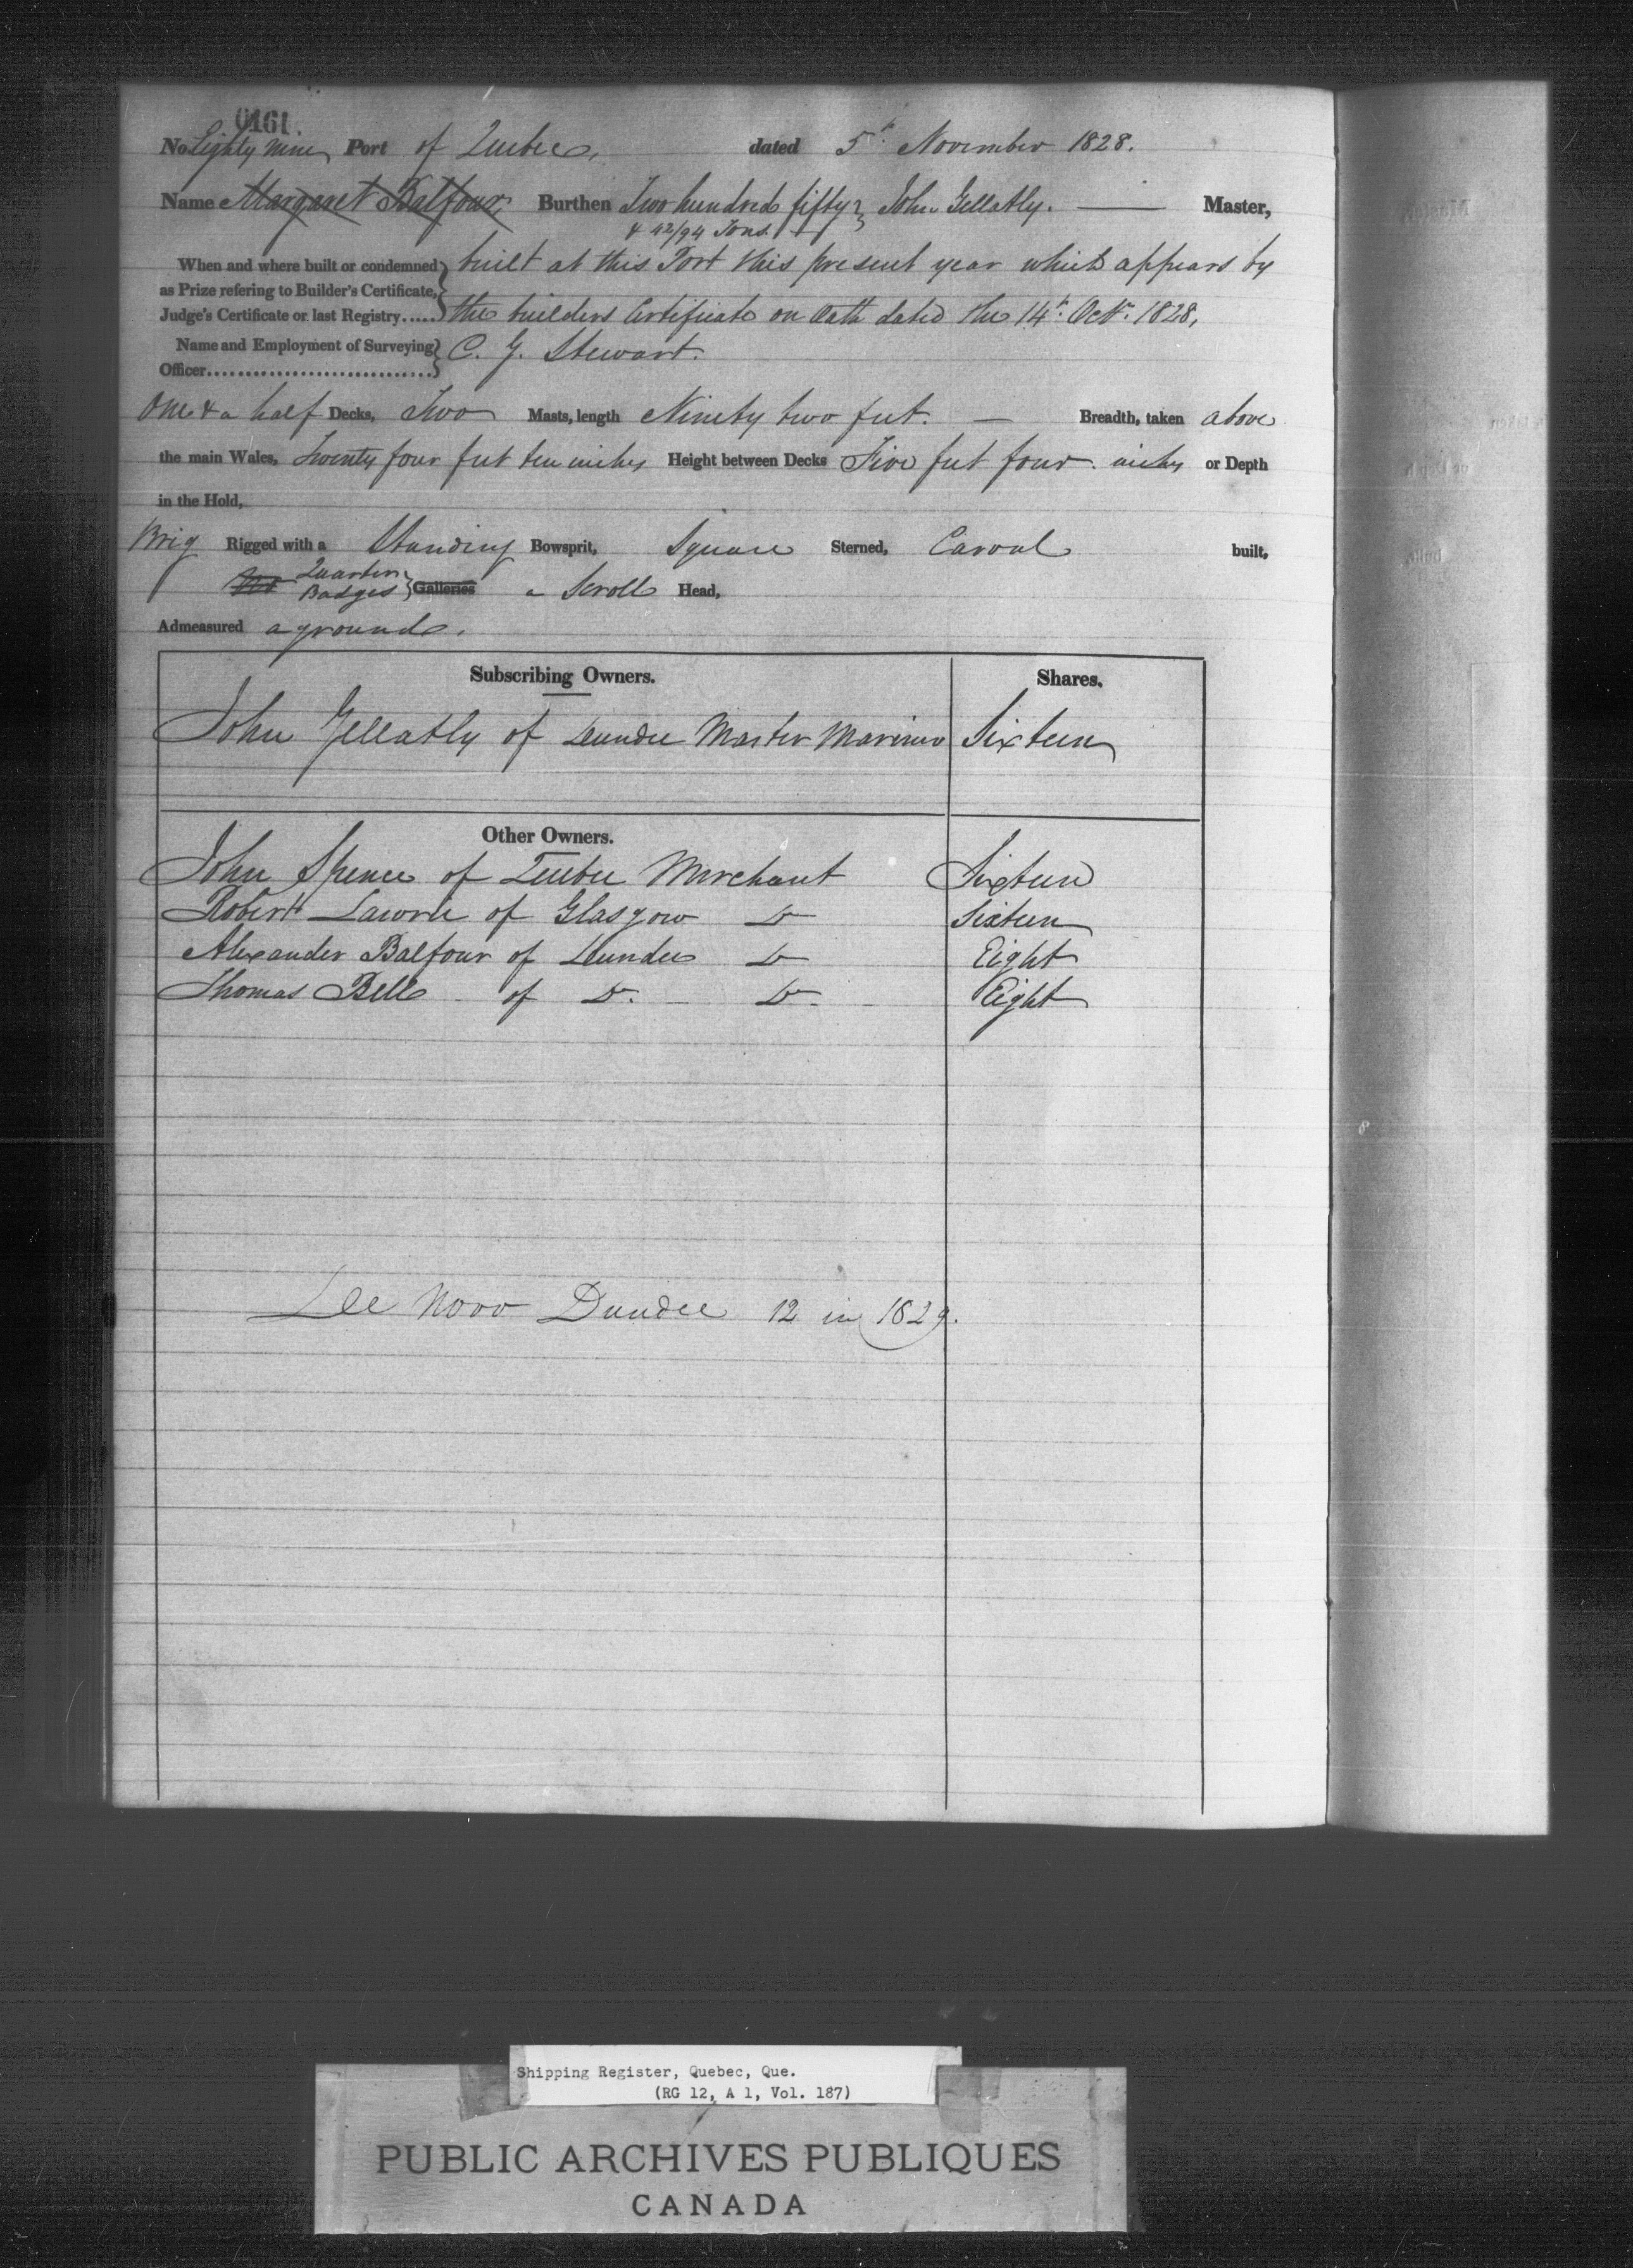 0161.
No Eighty nine Port of Quebec, dated 5th November 1828.
Name Margaret Balfour, Burthen Two hundred fifty } John Gellatly. — Master,
& 42/94 Tons.
When and where built or condemned } built at this Port this present year which appears by
as Prize refering to Builder's Certificate,
Judge's Certificate or last Registry..... } the builders Certificate on Oath dated the 14th Octr. 1828,
Name and Employment of Surveying } C. G. Stewart.
Officer..............................
One & a half Decks, Two Masts, length Ninety two feet. — Breadth, taken above
the main Wales, Twenty four feet ten inches Height between Decks Five feet four inches or Depth
in the Hold,
Brig Rigged with a Standing Bowsprit, Square Sterned, Carvel built,
Quarter
Badges } Galleries a Scroll Head,
Admeasured aground.
Subscribing Owners. Shares.
John Gellatly of Dundee Master Mariner Sixteen
Other Owners.
John Spence of Quebec Merchant Sixteen
Robert Lawrie of Glasgow Do Sixteen
Alexander Balfour of Dundee Do Eight
Thomas Bell of Do. - Do - Eight
De Novo Dundee 12 in 1829.
Shipping Register, Quebec, Que.
(RG 12, A 1, Vol. 187)
PUBLIC ARCHIVES PUBLIQUES
CANADA